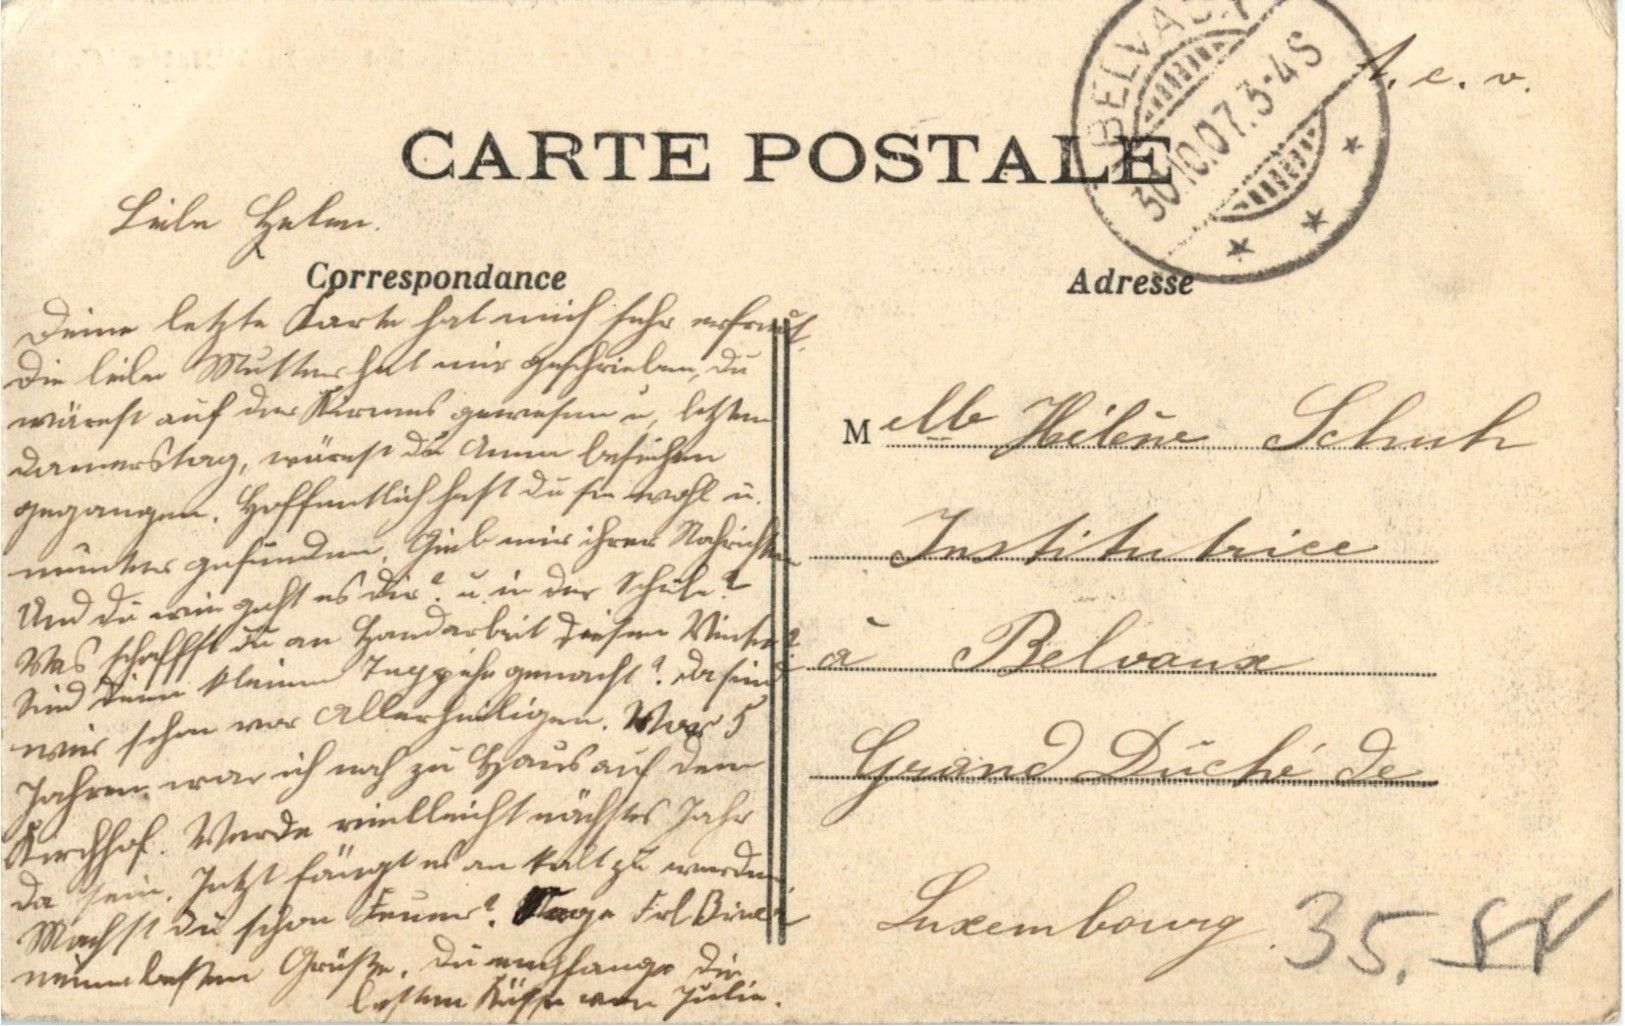 CARTE POSTALE
BELVAUX
30.10.07.3-4S
A. c. v.
Liebe Helen.
Correspondance
Adresse
Deine letzte Karte hat mich sehr erfreut.
Die liebe Mutter hat mir geschrieben, du
wärest auf der Kirmes gewesen u. letzten
Donnerstag, wärest du Anna besuchen
gegangen. Hoffentlich hast du sie wohl u.
munter gefunden. Gieb mir ihrer Nachrichten
Und du wie geht es dir? u. in der Schule?
Was schaffst du an Handarbeit diesen Winter?
Sind deine kleinen Teppiche gemacht? Da sind
wir schon vor Allerheiligen. Vor 5
Jahren war ich noch zu Haus auf dem
Kirchhof. Werde vielleicht nächstes Jahr
da sein. Jetzt fängt es an kalt zu werden
Machst du schon Feuer? Sage Frl
meine besten Grüße. Du empfange die
besten Küsse von Julie.
Melle Hélène Schuh
Institutrice
à Belvaux
Grand Duché de
Luxembourg.
35.